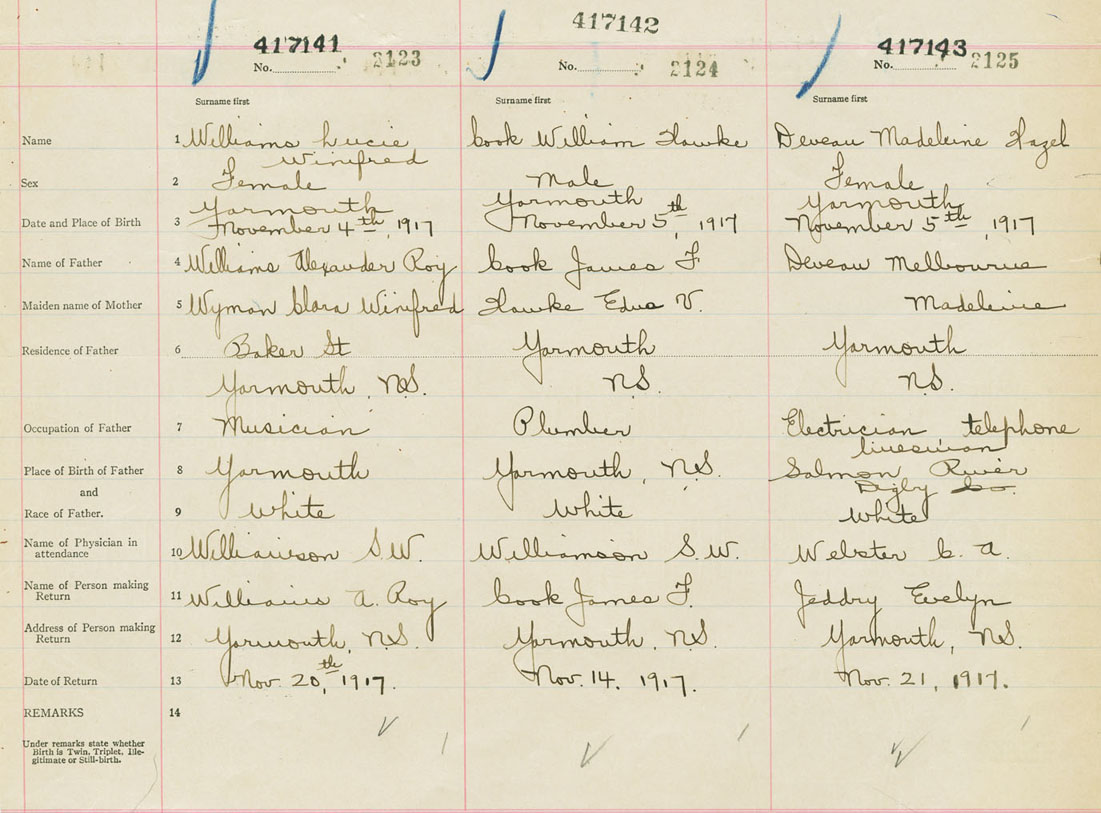 417141 417142 417143
No. 2123 No. 2124 No. 2125
Surname first Surname first Surname first
Name 1 Williams Lucie Cook William Hawke Deveau Madeleine Hazel
Winifred
Sex 2 Female Male Female
Yarmouth Yarmouth Yarmouth
Date and Place of Birth 3 November 4th, 1917 November 5th, 1917 November 5th, 1917
Name of Father 4 Williams Alexander Roy Cook James F Deveau Melbourne
Maiden name of Mother 5 Wyman Clara Winifred Hawke Edna V. Madeleine
Residence of Father 6 Baker St Yarmouth Yarmouth
Yarmouth, N.S. N.S. N.S.
Occupation of Father 7 Musician Plumber Electrician telephone
linesman
Place of Birth of Father 8 Yarmouth Yarmouth, N.S. Salmon River
and Digby Co.
Race of Father. 9 White White White
Name of Physician in
attendance 10 Williamson S.W. Williamson S.W. Webster C. A.
Name of Person making
Return 11 Williams A. Roy Cook James F. Jeddry Evelyn
Address of Person making
Return 12 Yarmouth, N.S. Yarmouth, N.S. Yarmouth, N.S.
Date of Return 13 Nov. 20th, 1917. Nov. 14, 1917. Nov. 21, 1917.
REMARKS 14
Under remarks state whether
Birth is Twin, Triplet, Ille-
gitimate or Still-birth.